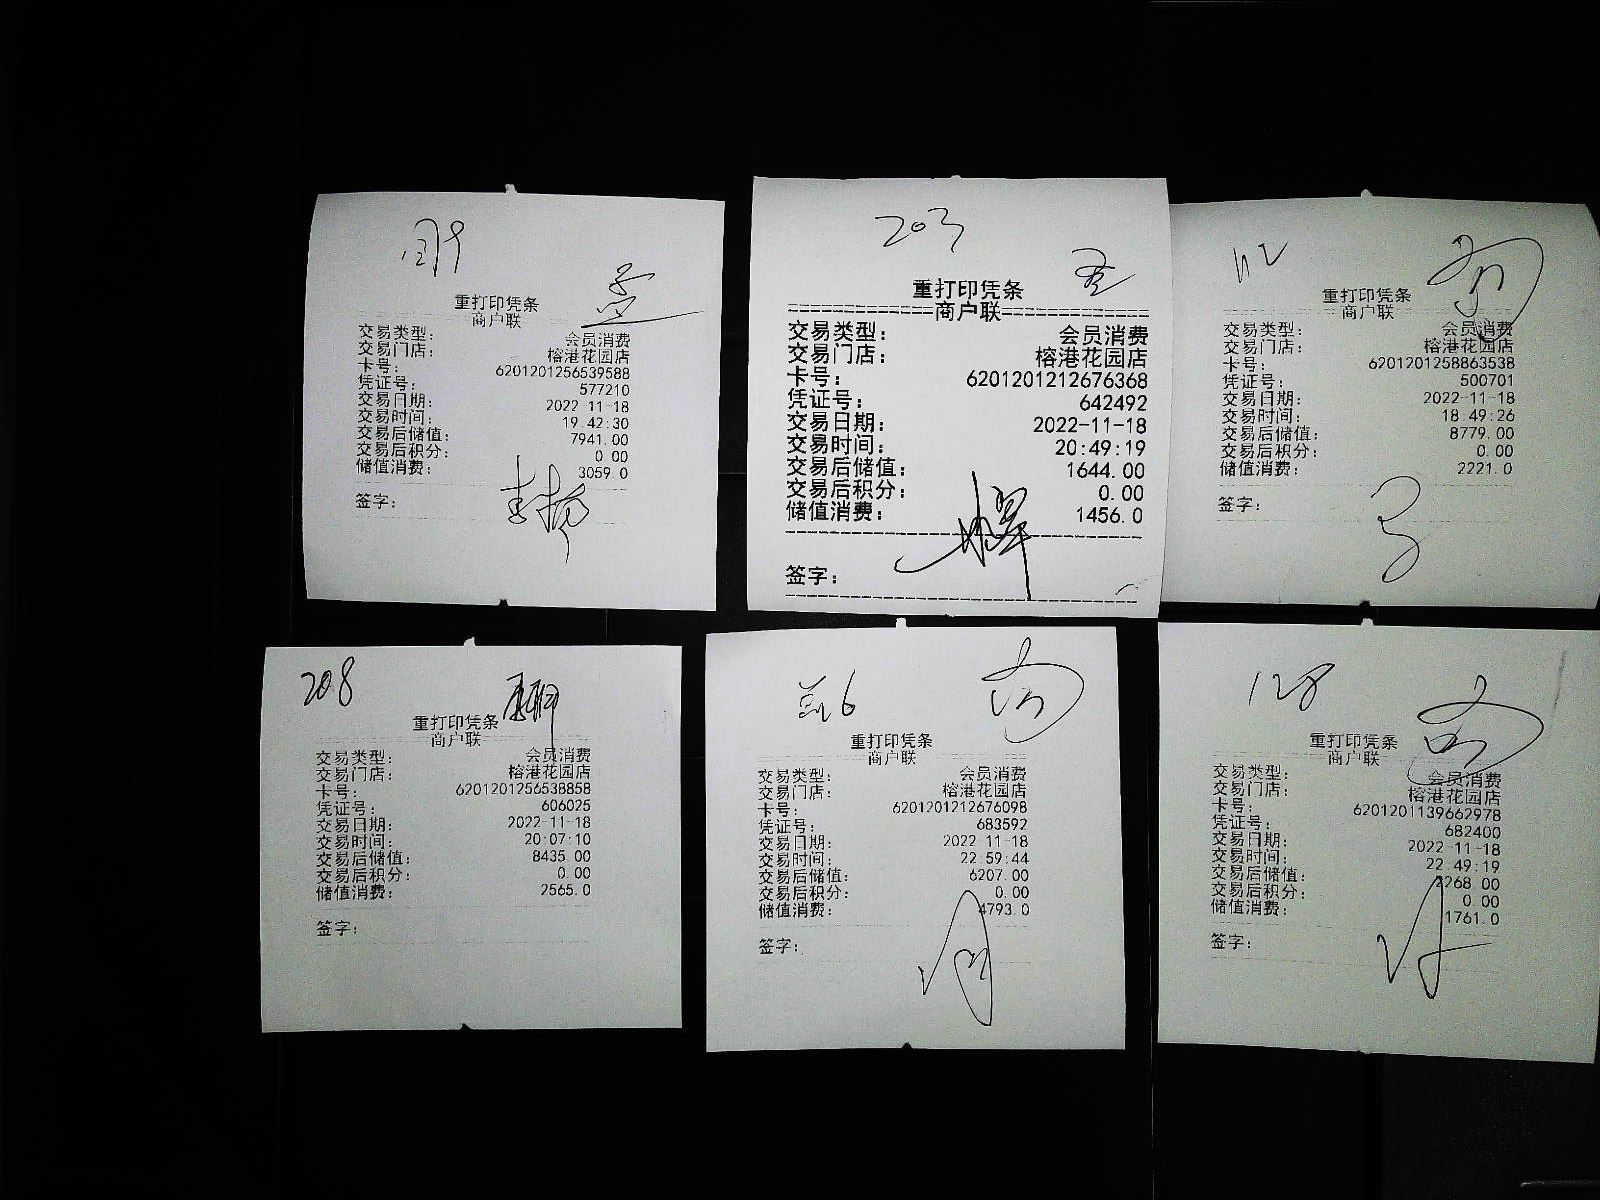 重打印凭条
商户联
交易类型： 会员消费
交易门店： 榕港花园店
卡号： 6201201256539588
凭证号： 577210
交易日期： 2022-11-18
交易时间： 19:42:30
交易后储值： 7941.00
交易后积分： 0.00
储值消费： 3059.0
签字：
203
重打印凭条
商户联
交易类型： 会员消费
交易门店： 榕港花园店
卡号： 6201201212676368
凭证号： 642492
交易日期： 2022-11-18
交易时间： 20:49:19
交易后储值： 1644.00
交易后积分： 0.00
储值消费： 1456.0
签字：
112
重打印凭条
商户联
交易类型： 会员消费
交易门店： 榕港花园店
卡号： 6201201258863538
凭证号： 500701
交易日期： 2022-11-18
交易时间： 18:49:26
交易后储值： 8779.00
交易后积分： 0.00
储值消费： 2221.0
签字：
208
重打印凭条
商户联
交易类型： 会员消费
交易门店： 榕港花园店
卡号： 6201201256538858
凭证号： 606025
交易日期： 2022-11-18
交易时间： 20:07:10
交易后储值： 8435.00
交易后积分： 0.00
储值消费： 2565.0
签字：
重打印凭条
商户联
交易类型： 会员消费
交易门店： 榕港花园店
卡号： 6201201212676098
凭证号： 683592
交易日期： 2022-11-18
交易时间： 22:59:44
交易后储值： 6207.00
交易后积分： 0.00
储值消费： 4793.0
签字：
128
重打印凭条
商户联
交易类型： 会员消费
交易门店： 榕港花园店
卡号： 6201201139662978
凭证号： 682400
交易日期： 2022-11-18
交易时间： 22:49:19
交易后储值： 2268.00
交易后积分： 0.00
储值消费： 1761.0
签字：